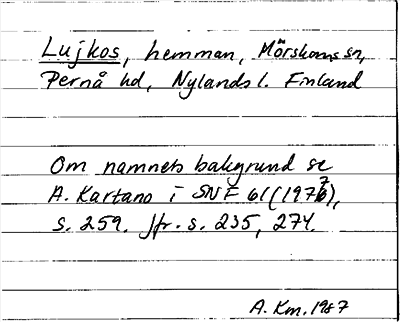 Lujkos, hemman, Mörskoms sn,
Pernå hd, Nylands l. Finland
Om namnets bakgrund se
A. Kartano i SNF 61 (1973),
s. 259. Jfr. s. 235, 274.
A. Km. 1987